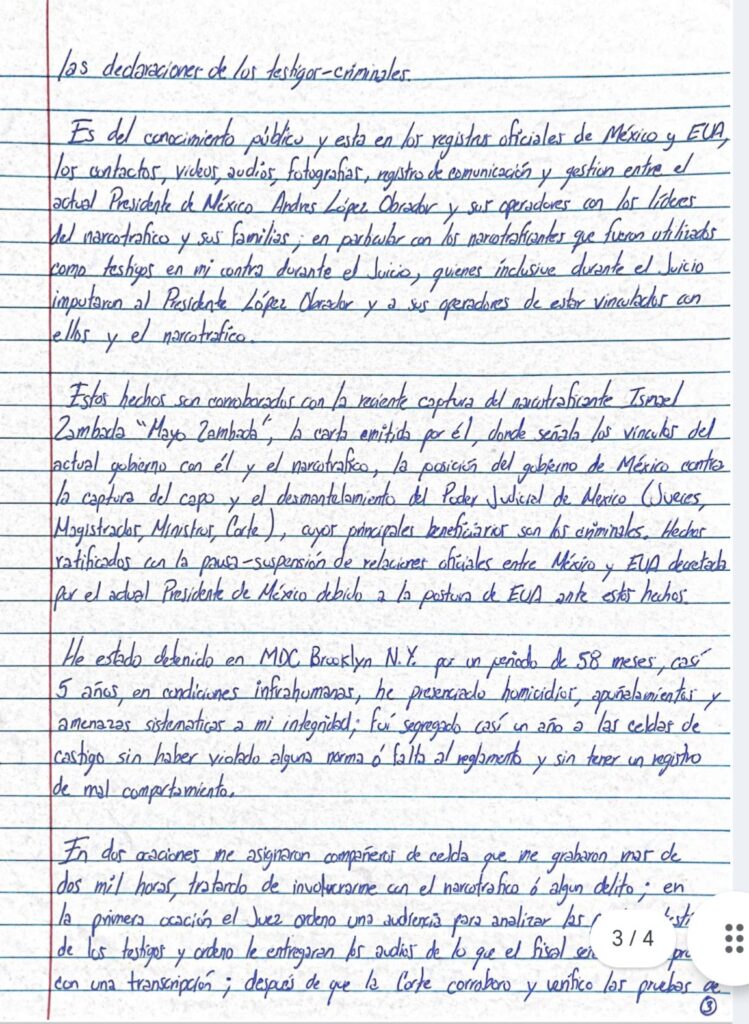 las declaraciones de los testigos-criminales.
Es del conocimiento público y esta en los registros oficiales de México y EUA,
los contactos, videos, audios, fotografias, registro de comunicación y gestion entre el
actual Presidente de México Andres López Obrador y sus operadores con los líderes
del narcotrafico y sus familias; en particular con los narcotraficantes que fueron utilizados
como testigos en mi contra durante el Juicio, quienes inclusive durante el Juicio
imputaron al Presidente López Obrador y a sus operadores de estar vinculados con
ellos y el narcotrafico.
Estos hechos son corroborados con la reciente captura del narcotraficante Ismael
Zambada "Mayo Zambada", la carta emitida por él, donde señala los vinculos del
actual gobierno con él y el narcotrafico, la posición del gobierno de México contra
la captura del capo y el desmantelamiento del Poder Judicial de Mexico (Jueces,
Magistrados, Ministros, Corte), cuyos principales beneficiarios son los criminales. Hechos
ratificados con la pausa-suspensión de relaciones oficiales entre México y EUA decretada
por el actual Presidente de México debido a la postura de EUA ante estos hechos.
He estado detenido en MDC Brooklyn N.Y. por un periodo de 58 meses, casí
5 años, en condiciones infrahumanas, he presenciado homicidios, apuñalamientos y
amenazas sistematicas a mi integridad; fuí segregado casí un año a las celdas de
castigo sin haber violado alguna norma ó falta al reglamento y sin tener un registro
de mal comportamiento.
En dos ocaciones me asignaron compañeros de celda que me grabaron mas de
dos mil horas, tratando de involucrarme con el narcotrafico ó algun delito; en
la primera ocación el Juez ordeno una audiencia para analizar las
de los testigos y ordeno le entregaran los audios de lo que el fiscal
con una transcripción; después de que la Corte corroboro y verifico las pruebas de
3/4
3